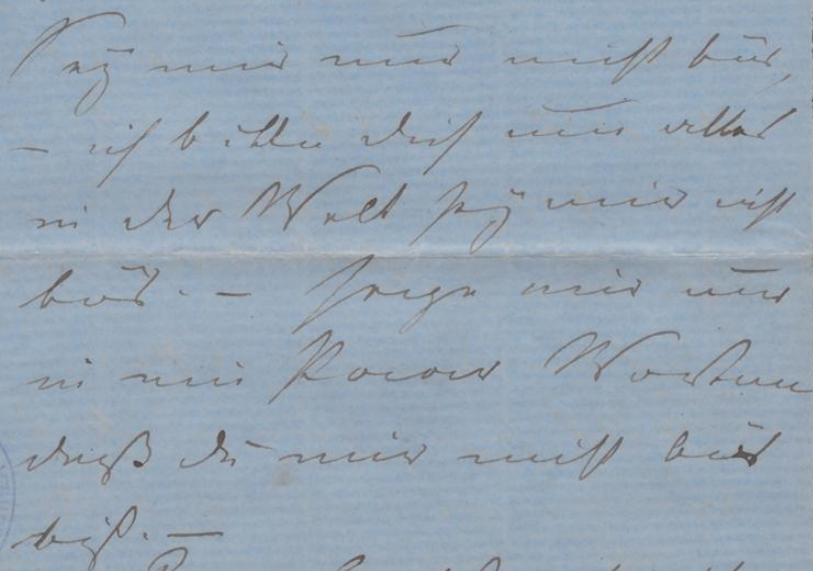 Sey mir nur nicht bös,
– ich bitte dich um alles
in der Welt sey mir nicht
bös. – sage mir nur
in ein Paar Worten
daß du mir nicht bös
bist. –